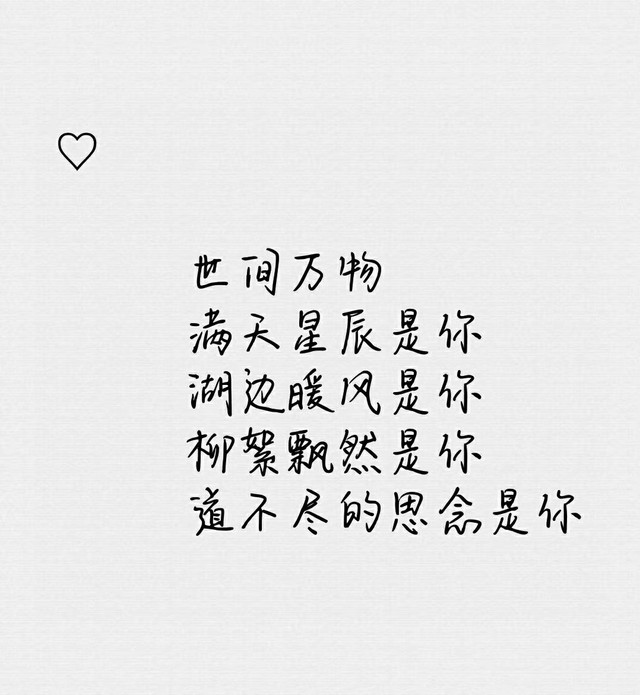 世间万物
满天星辰是你
湖边暖风是你
柳絮飘然是你
道不尽的思念是你